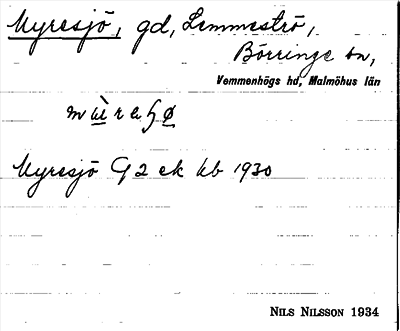 Myresjö, gd, Lemmeströ,
Börringe sn,
Vemmenhögs hd, Malmöhus län
Myresjö G 2 ek kb 1930
NILS NILSSON 1934